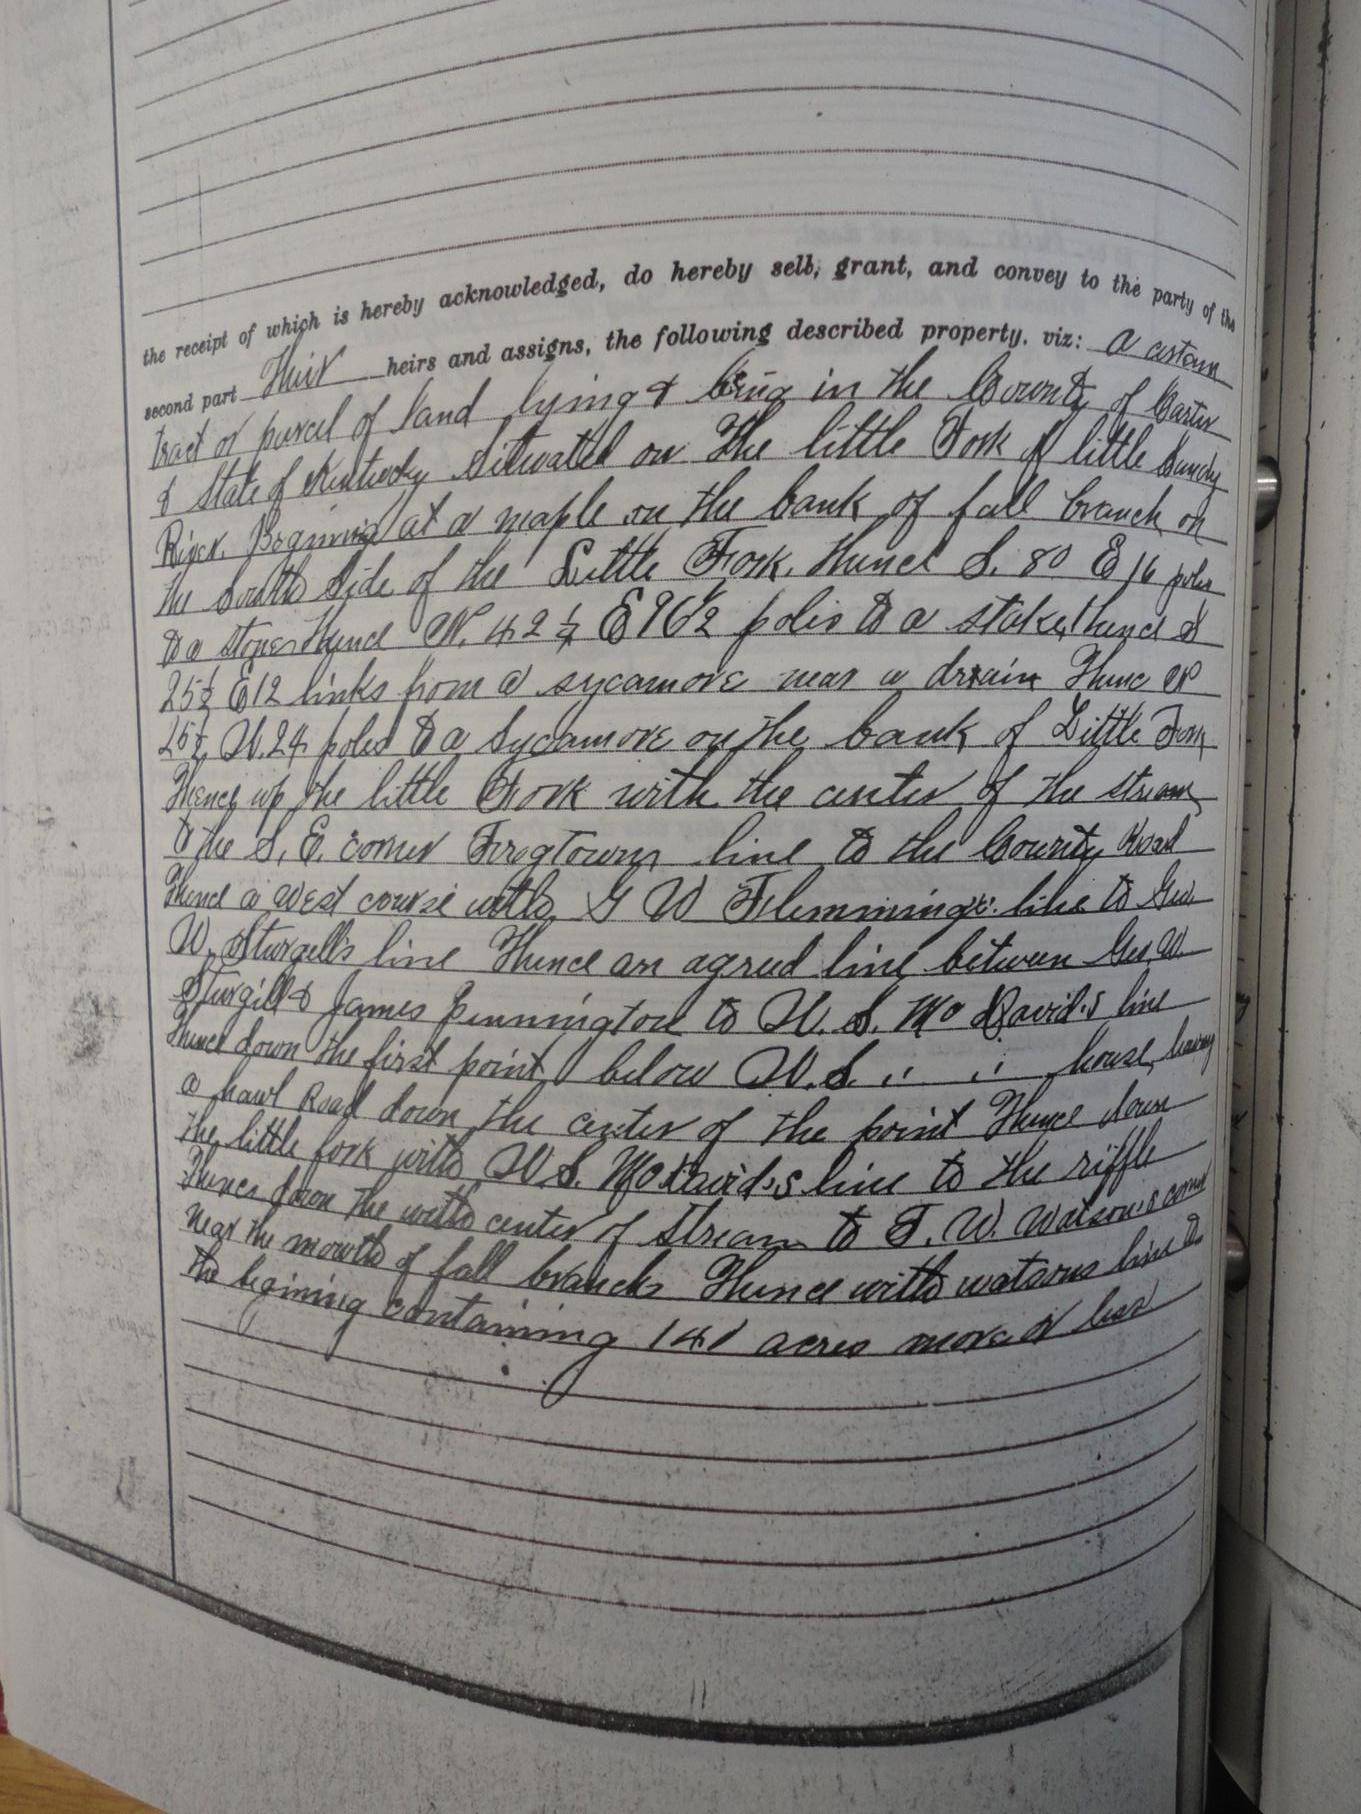 the receipt of which is hereby acknowledged, do hereby sell, grant, and convey to the party of the
second part Their heirs and assigns, the following described property, viz: A certain
tract or parcel of land lying & being in the County of Carter
& State of Kentucky Situated on The little Fork of little Sandy
River. Begining at a maple on the bank of fall branch on
the South Side of the Little Fork. Thence S. 80 E 16 poles
to a stone Thence N. 42 ½ E 96½ poles to a stake, thence S
25½ E 12 links from a sycamore near a drain Thence N
25½ W. 24 poles to a Sycamore on the bank of Little Fork
Thence up the little Fork with the center of the stream
to the S, E. corner Frogtown line to the County Road
Thence a West course with G W Flemming's line to Geo
W. Sturgell's line Thence an agreed line between Geo. W.
Sturgill & James Pennington to W. S. McDavid's line
Thence down the first point below W. S. " " house, having
a hawl Road down the center of the point Thence down
the little fork with W S. McDavid's line to the riffle
Thence down the with center of Stream to F. W. Watson's corner
near the mouth of fall branch Thence with watsons line to
the begining containing 141 acres more or less